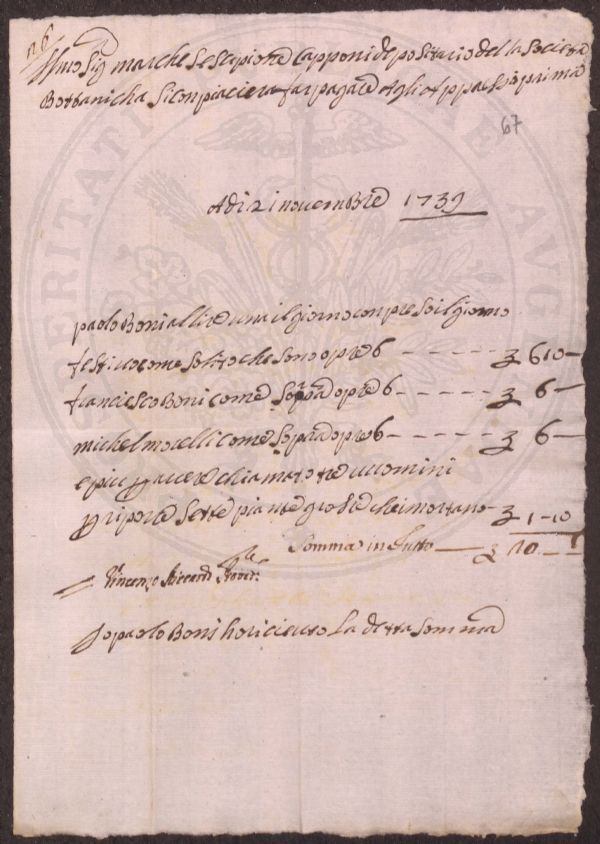 Ill.mo Sig marchese Scipione Capponi depositario della Società
Bottanicha Si conpiacera far pagare Agli Appiesso prima
67
Adi 21 novembre 1739
paolo Boni a llire una il giorno conpreso il giorno
festivo come Solito che Sono opre 6 - - - - - 6 10 -
franciesco Boni come Sopra opre 6 - - - - 6 -
michel morelli come Sopra opre 6 - - - - 6 -
e piu p avere chiamato tre uomini
p riporre Sette piante grosse che inportano - 1 - 10
Somma in Tutto — 20 -
Vincenzo Riccardi Provv.re
Io paolo Boni ho ricieuto La detta Somma
VERITATI
AVG